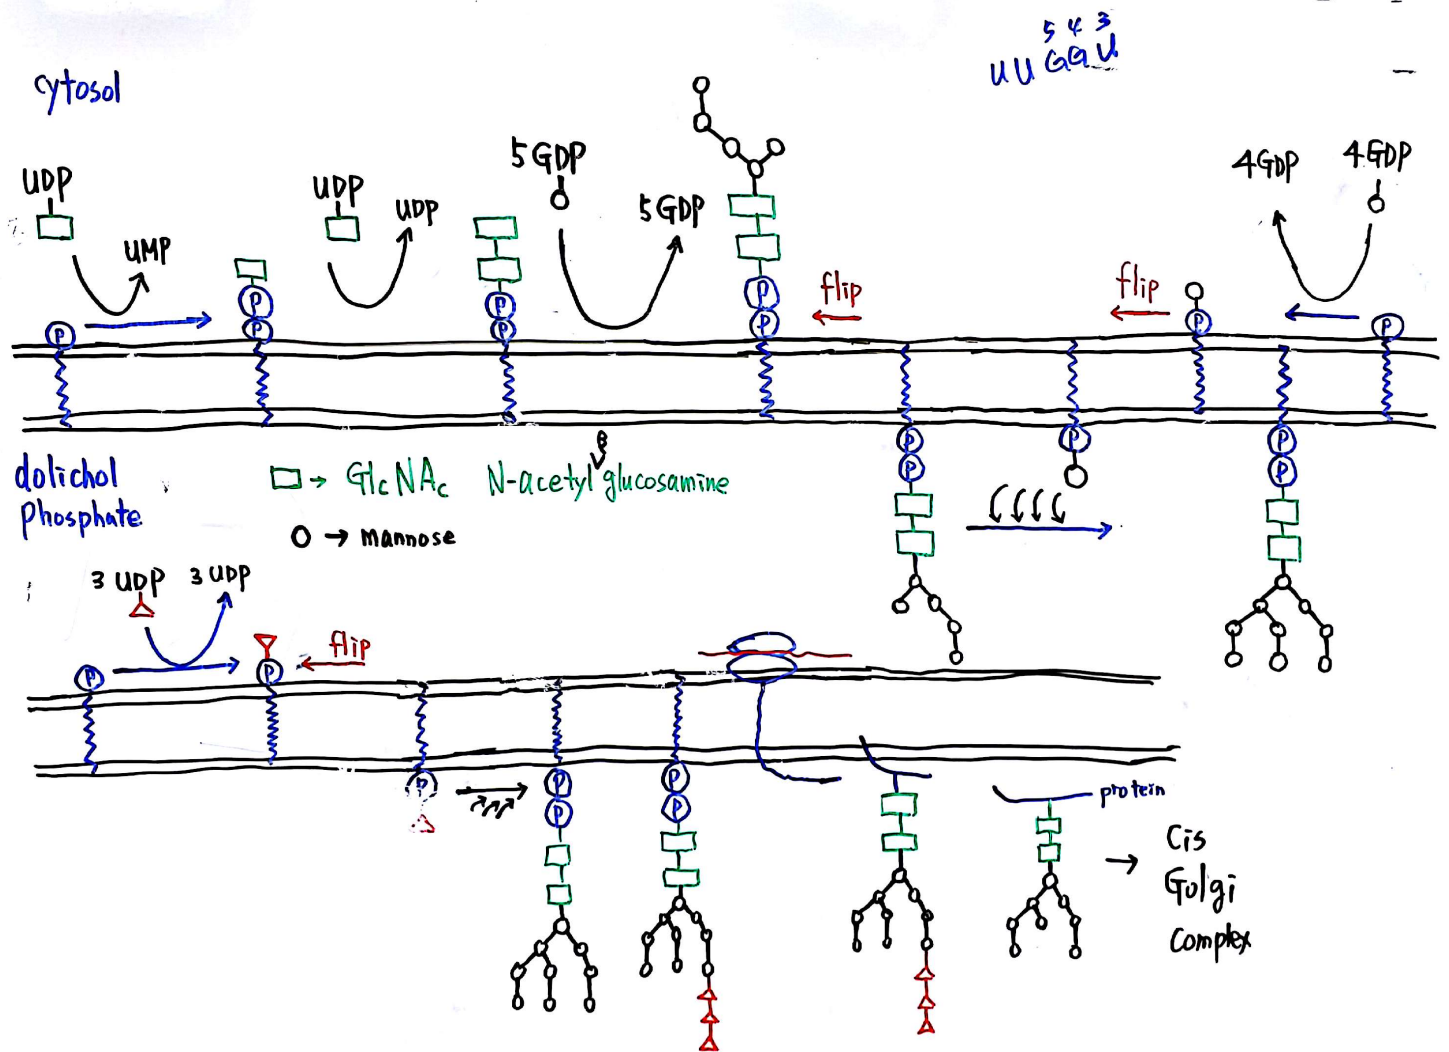 5 4 3
UUGGU
cytosol
UDP
UMP
P
P
P
UDP
UDP
P
P
5GDP
5GDP
P
P
flip
flip
P
4GDP
4GDP
P
P
P
P
P
P
dolichol
phosphate
→ GlcNAc N-acetyl glucosamine
β
→ Mannose
3 UDP
3 UDP
P
P
flip
P
P
P
P
P
protein
→ Cis
Golgi
Complex